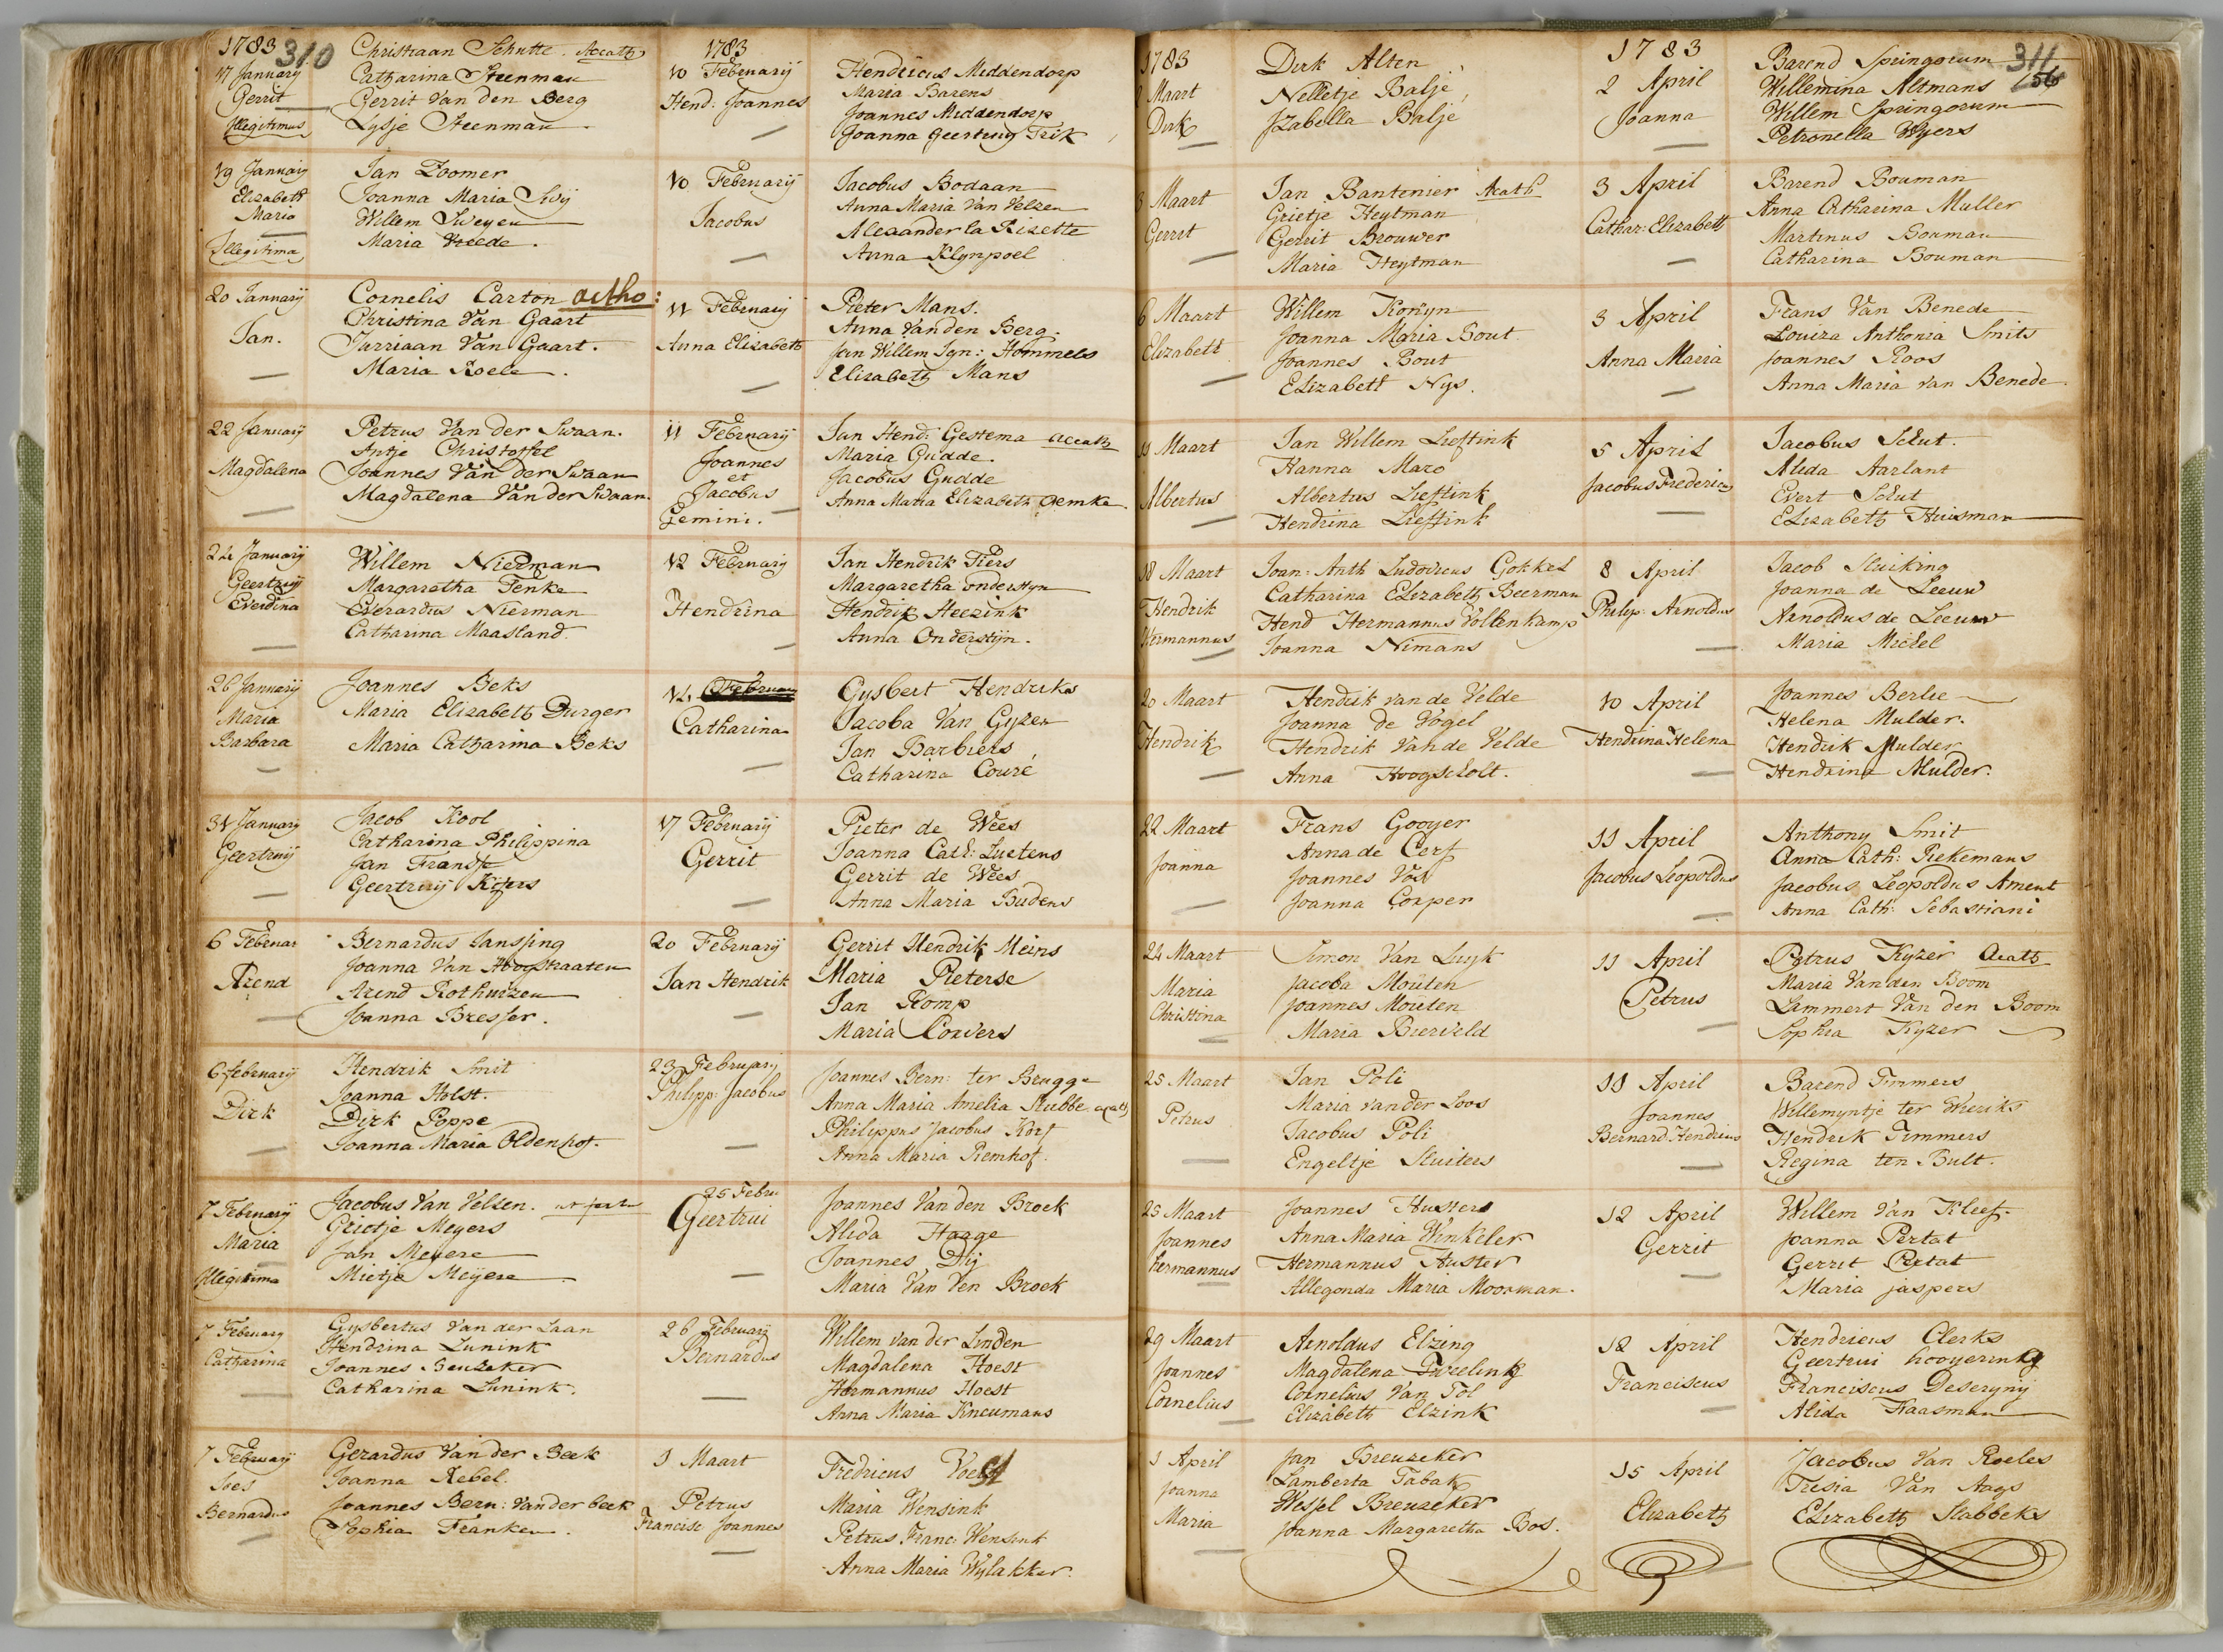 1783 310
17 January
Gerrit
Illegitimus
Christiaan Schutte. Acath
Catharina Steenman
Gerrit Van den Berg
Lysje Steenman.
19 January
Elizabeth
Maria
Illegitima
Jan Zoomer
Joanna Maria
Willem Sweyen
Maria Vreede.
20 January
Jan.
Cornelis Carton actho:
Christina Van Gaart
Jurriaan Van Gaart.
Maria Roele.
22 January
Magdalena
Petrus Van der Swaan.
Antje Christoffel
Joannes Van der Swaan
Magdalena Van der Swaan.
24 January
Geertruij
Everdina
Willem Nierman
Margaretha Fenke
Everardus Nierman
Catharina Maasland.
26 January
Maria
Barbara
Joannes Beks
Maria Elizabeth Durger
Maria Catharina Beks
31 January
Geertruij
Jacob Kool
Catharina Philippina
Jan Transse
Geertruij Kijfers
6 Februar
Arend
Bernardus Janssing
Joanna Van Hoogstraaten
Arend Rothuizen
Joanna Bresser.
6 february
Dirk
Hendrik Smit
Joanna Holst.
Dirk Poppe
Joanna Maria Oldenhof.
7 February
Maria
Illegitima
Jacobus Van Velsen.
Grietje Meyers
Jan Meyere
Mietje Meijere
7 February
Catharina
Gysbertus Van der Laan
Hendrina Lunink
Joannes Breuzeker
Catharina Lunink.
7 February
Joes
Bernardus
Gerardus Van der Beek
Joanna Rebel.
Joannes Bern: Van der beek
Sophia Franken.
1783
10 February
Hend: Joannes
Hendricus Middendorp
Maria Barens
Joannes Middendorp
Joanna Geertruy Trik
10 February
Jacobus
Jacobus Bodaan
Anna Maria Van Velzen
Alexander la Rizette
Anna Klynpoel
11 February
Anna Elizabeth
Pieter Mans.
Anna Van den Berg.
Jan Willem Ign: Hommels
Elizabeth Mans
11 February
Joannes
et
Jacobus
Gemini.
Jan Hend: Gestema acath
Maria Gudde.
Jacobus Gudde
Anna Maria Elizabeth Oemke.
12 February
Hendrina
Jan Hendrik Fiers
Margaretha Onderstyn
Hendrik Heezink
Anna Onderstijn.
14 Februar
Catharina
Gysbert Hendriks
Jacoba Van Gyzen
Jan Barbiers
Catharina Couré
17 February
Gerrit
Pieter de Wees
Joanna Cath: Luetens
Gerrit de Wees
Anna Maria Budens
20 February
Jan Hendrik
Gerrit Hendrik Meins
Maria Pieterse
Jan Romp
Maria Corvers
23 February
Philipp: Jacobus
Joannes Bern: ter Brugge
Anna Maria Amelia Stubbe acath
Philippus Jacobus Korf
Anna Maria Remhof.
25 Febru
Geertrui
Joannes Van den Broek
Alida Haage
Joannes Dij
Maria Van den Broek
26 February
Bernardus
Willem van der Linden
Magdalena Hoest
Hermannus Hoest
Anna Maria Kneumans
1 Maart
Petrus
Francisc Joannes
Fredricus
Maria Wensink
Petrus Franc: Wensink
Anna Maria Wylakker.
1783
Maart
Dirk
Dirk Alten
Nelletje Balje
Izabella Balje
3 Maart
Gerrit
Jan Bantenier Acath
Grietje Heytman
Gerrit Brouwer
Maria Heytman
6 Maart
Elizabeth
Willem Konyn
Joanna Maria Bout
Joannes Bout
Elizabeth Nys.
11 Maart
Albertus
Jan Willem Lieftink
Hanna Maro
Albertus Lieftink
Hendrina Lieftink
18 Maart
Hendrik
Hermannus
Joan: Anth Ludovicus Gokkel
Catharina Elizabeth Beerman
Hend Hermannus Voltenkamp
Joanna Nimans
20 Maart
Hendrik
Hendrik van de Velde
Joanna de Vogel
Hendrik Van de Velde
Anna Hoogscholt.
22 Maart
Joanna
Frans Gooyer
Anna de Cerf
Joannes Vos
Joanna Corper
24 Maart
Maria
Christina
Simon Van Luyk
Jacoba Mouten
Joannes Mouten
Maria Bierveld
25 Maart
Petrus
Jan Poli
Maria van der Loos
Jacobus Poli
Engeltje Sluiters
25 Maart
Joannes
hermannus
Joannes Husters
Anna Maria Winkeler
Hermannus Huster
Allegonda Maria Moorman.
29 Maart
Joannes
Cornelius
Arnoldus Elzing
Magdalena Tweelink
Cornelius Van Tol
Elizabeth Elzink
1 April
Joanna
Maria
Jan Breuzeker
Lamberta Tabak
Wessel Breuzeker
Joanna Margaretha Bos.
1783
2 April
Joanna
Barend Springorum 311
Willemina Altmans 156
Willem Springorum
Petronella Wyers
3 April
Cathar: Elizabeth
Barend Bouman
Anna Catharina Muller
Martinus Bouman
Catharina Bouman
3 April
Anna Maria
Frans Van Benede
Louiza Anthonia Smits
Joannes Roos
Anna Maria van Benede
5 April
Jacobus Frederic
Jacobus Schut.
Alida Aarlant
Evert Schut
Elizabeth Huisman
8 April
Philip: Arnoldus
Jacob Sluiking
Joanna de Leeuw
Arnoldus de Leeuw
Maria Michel
10 April
Hendrina Helena
Joannes Berlie
Helena Mulder.
Hendrik Mulder
Hendrina Mulder.
11 April
Jacobus Leopoldus
Anthony Smit
Anna Cath: Piekemans
Jacobus Leopoldus Ament
Anna Cath: Sebastiani
11 April
Petrus
Petrus Kyzer Acath
Maria Van den Boom
Lammert Van den Boom
Sophia Kyzer
11 April
Joannes
Bernard Hendricus
Barend Timmers
Willemyntje ter Wieriks
Hendrik Timmers
Regina ten Bult.
12 April
Gerrit
Willem Van Kleef.
Joanna Pertat
Gerrit Pertat
Maria jaspers
12 April
Franciscus
Hendricus Clerks
Geertrui hooyerink
Franciscus Deserynij
Alida Haasman
15 April
Elizabeth
Jacobus Van Roeles
Tresia Van Aags
Elizabeth Slabbeks